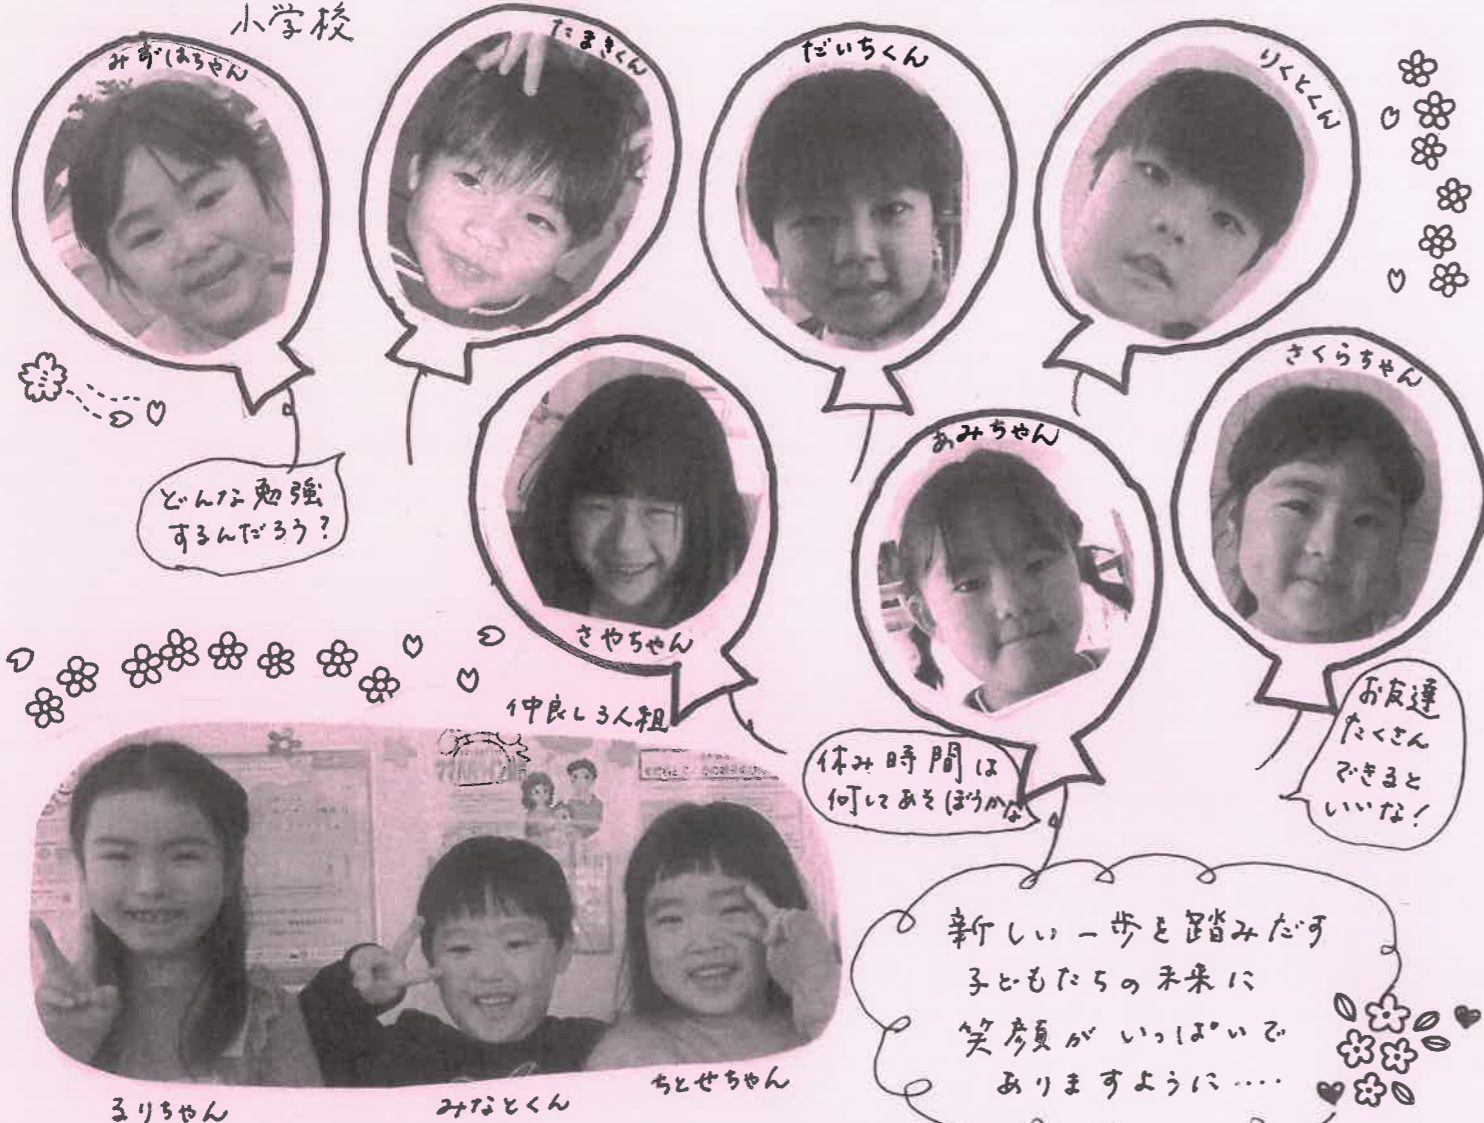 小学校
みずほちゃん
たまきくん
だいちくん
りくとくん
どんな勉強
するんだろう?
さやちゃん
あみちゃん
さくらちゃん
仲良し3人組
休み時間は
何してあそぼうかな
お友達
たくさん
できると
いいな!
るりちゃん
みなとくん
ちとせちゃん
新しい一歩を踏みだす
子どもたちの未来に
笑顔がいっぱいで
ありますように....